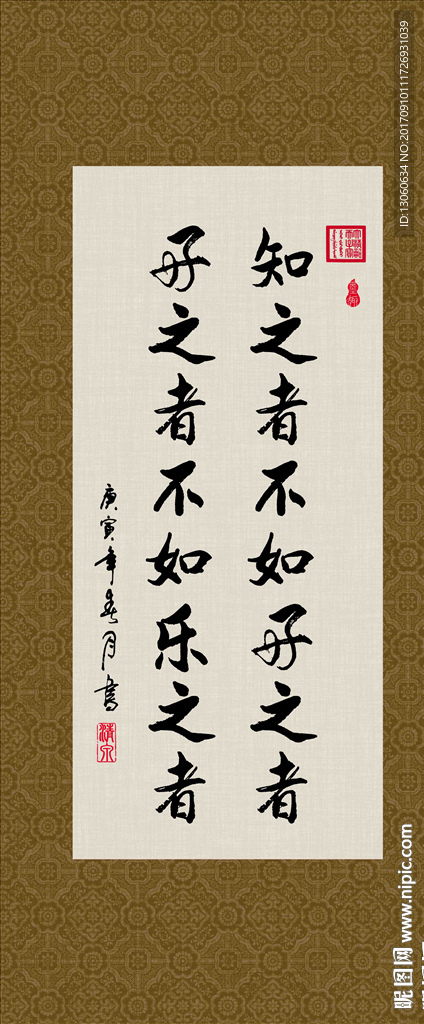 知之者不如好之者
好之者不如乐之者
庚寅年春月书
清泉
ID:13060634 NO:20170910111726931039
昵图网 www.nipic.com